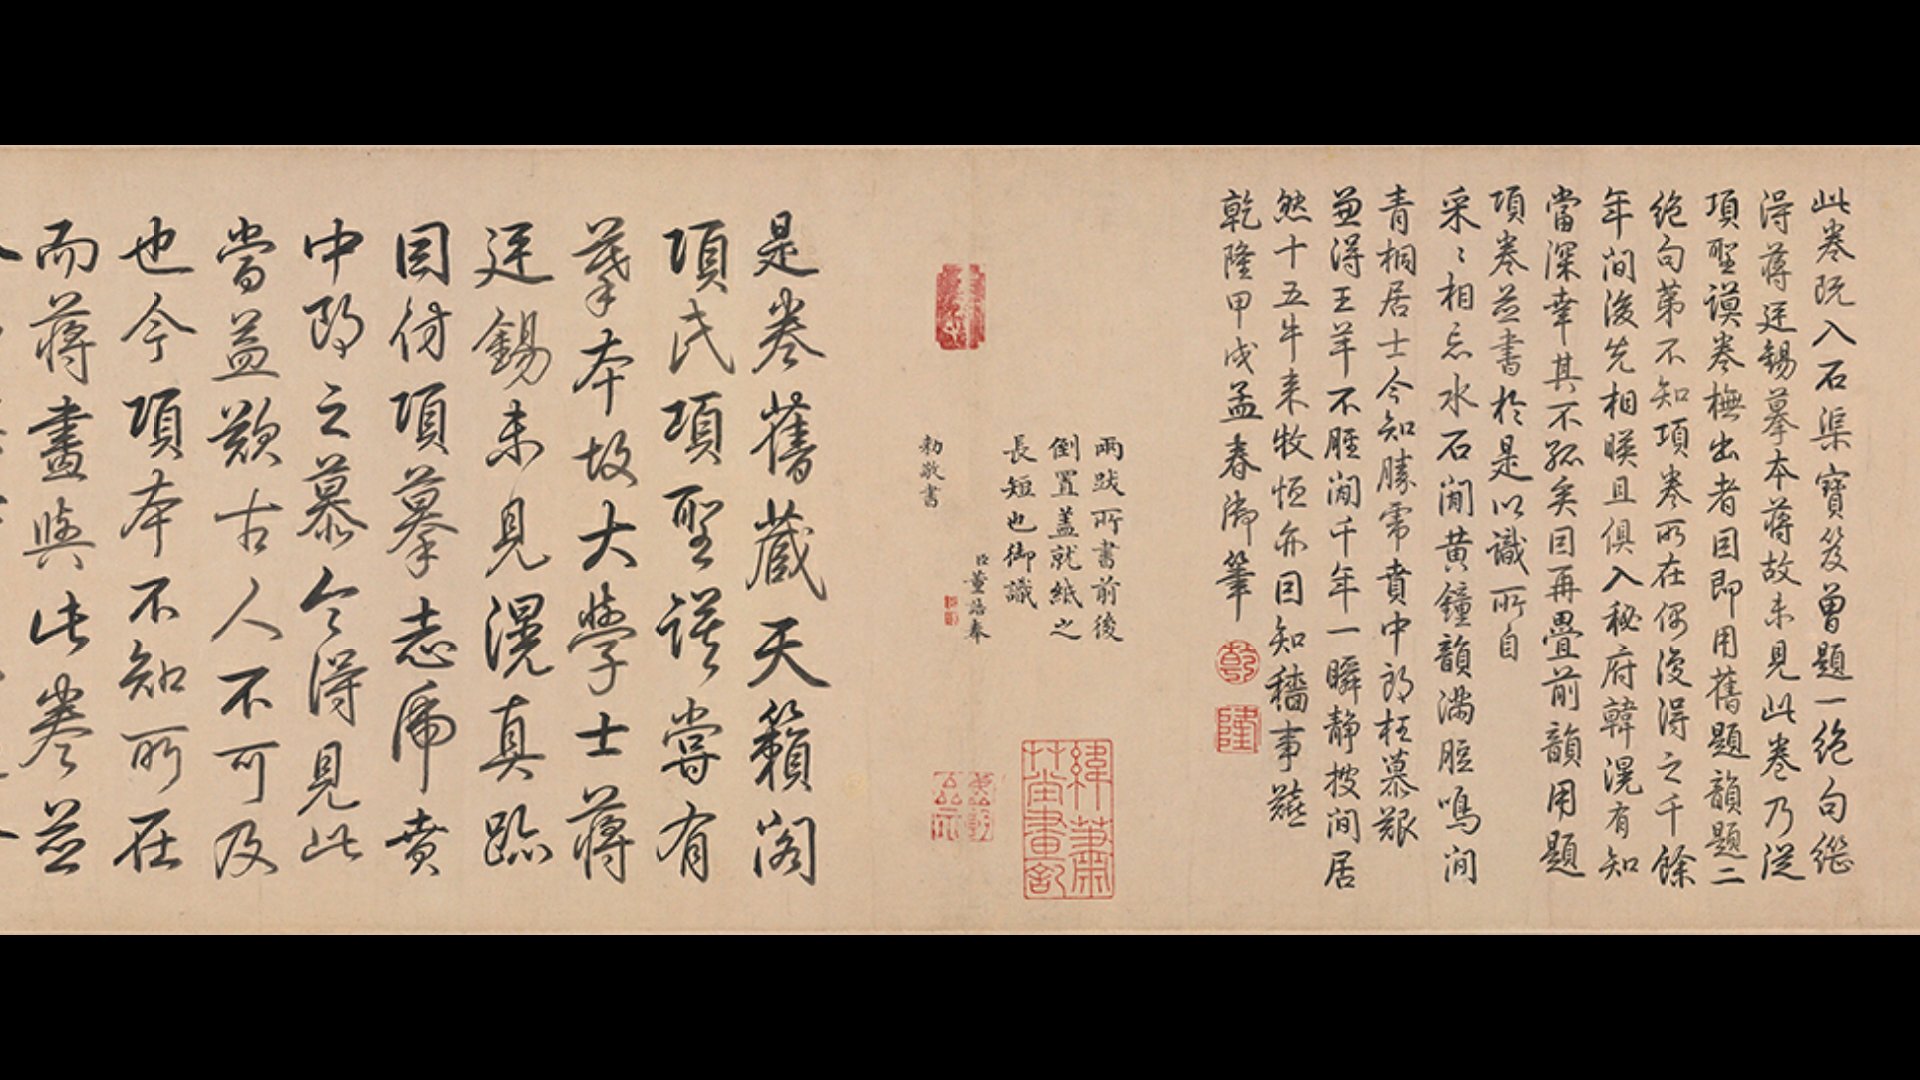 此卷既入石渠寶笈曾題一絶句繼
得蔣廷錫摹本蔣故未見此卷乃從
項聖謨卷橅出者因即用舊題韻題二
絶句第不知項卷所在偶復得之千餘
年間後先相暎且俱入秘府韓滉有知
當深幸其不孤矣因再疊前韻用題
項卷並書於是以識所自
采〻相忘水石間黄鐘韻滿脰鳴間
青桐居士今知勝虎賁中郎枉慕艱
兼得王羊不脛間千年一瞬静披間居
然十五牛来牧恒亦因知穡事艱
乾隆甲戌孟春御筆
乾
隆
兩跋所書前後
倒置盖就紙之
長短也御識
臣董誥奉
勅敬書
緯蕭草堂畫記
是卷舊藏天籟閣
項氏項聖謨嘗有
摹本故大學士蔣
廷錫未見滉真跡
因仿項摹志虎賁
中郎之慕今得見此
當益歎古人不可及
也今項本不知所在
而蔣畫與此卷並